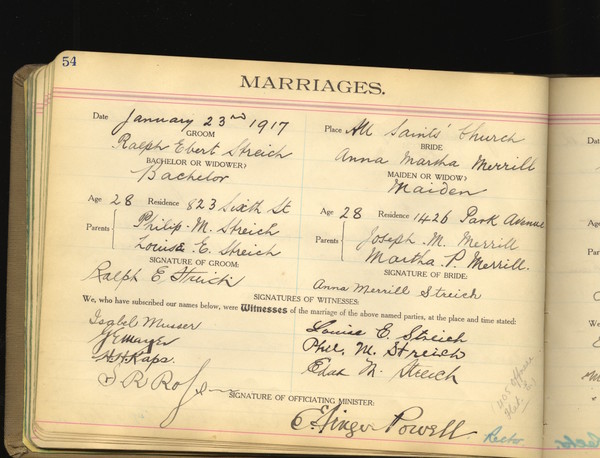 54
MARRIAGES.
Date January 23rd 1917 Place All Saints' Church
GROOM BRIDE
Ralph Ebert Streich Anna Martha Merrill
BACHELOR OR WIDOWER? MAIDEN OR WIDOW?
Bachelor Maiden
Age 28 Residence 823 Sixth St Age 28 Residence 1426 Park Avenue
Parents Philip M. Streich Parents Joseph M. Merrill
Louise E. Streich Martha P. Merrill.
SIGNATURE OF GROOM: SIGNATURE OF BRIDE:
Ralph E Streich Anna Merrill Streich
SIGNATURES OF WITNESSES:
We, who have subscribed our names below, were Witnesses of the marriage of the above named parties, at the place and time stated:
Isabel Musser Louise E. Streich
Phil. M. Streich
Kaps. M. Streich
S R
SIGNATURE OF OFFICIATING MINISTER:
Powell Rector
Date